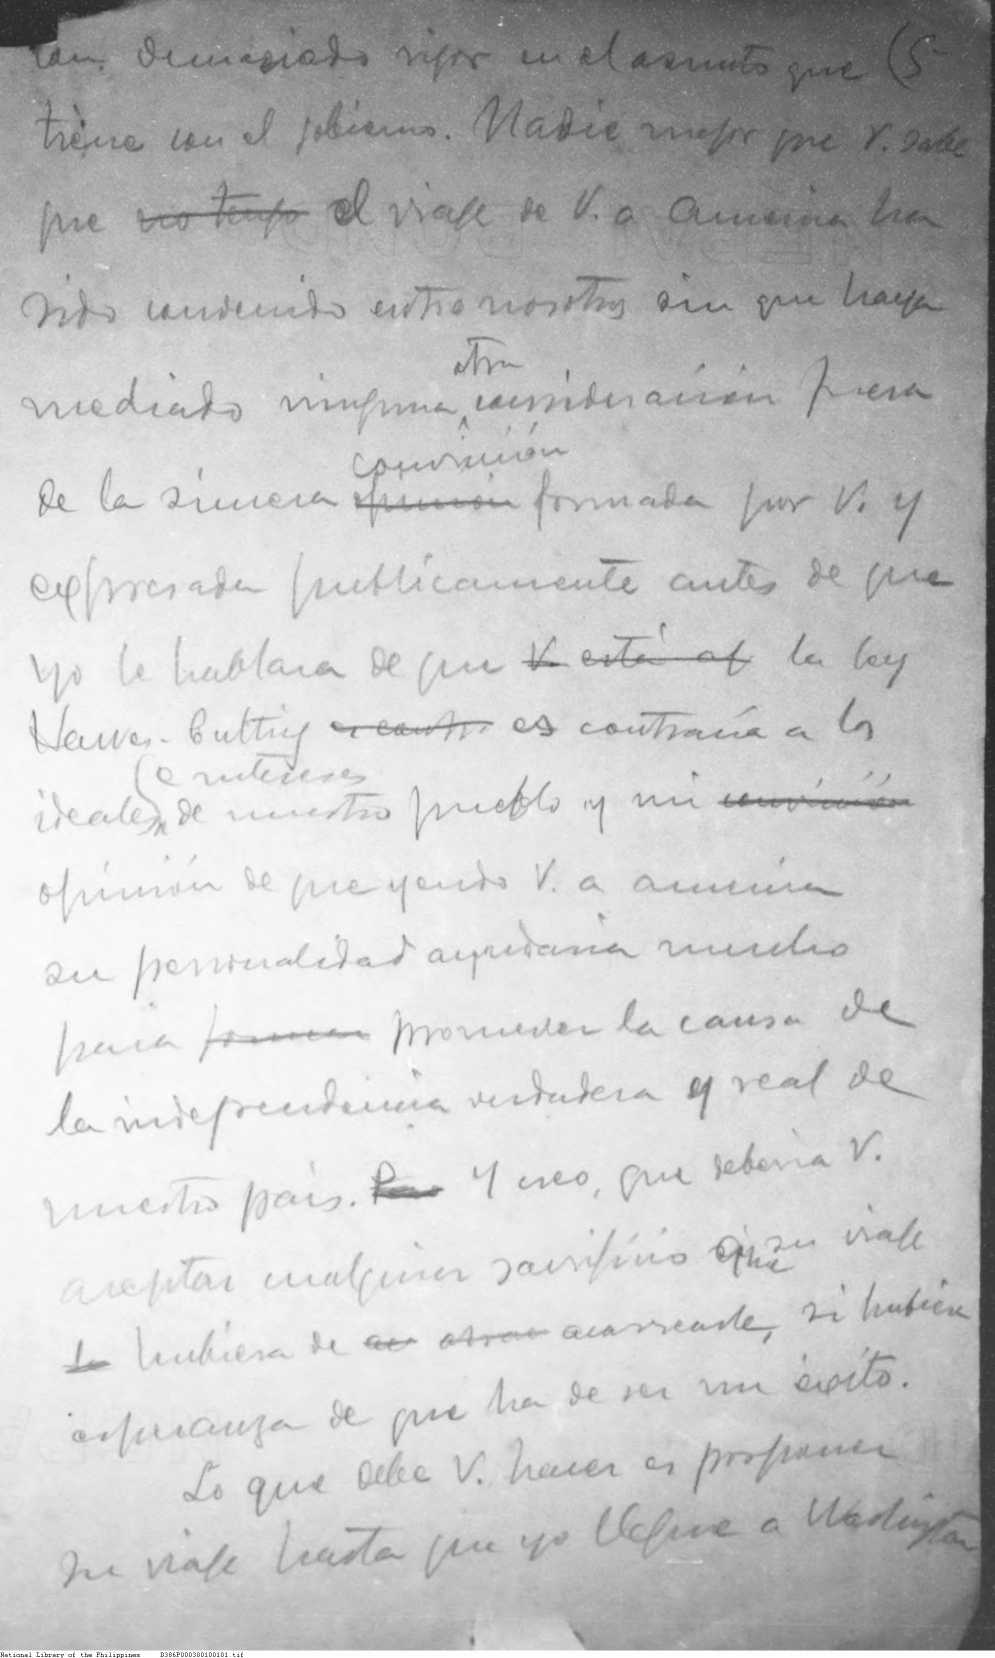 con demasiado rigor en el asunto que (5
tiene con el gobierno. Nadie mejor que V. sabe
que no tengo el viaje de V. a America ha
sido convenido entre nosotros sin que haya
otra
mediado ninguna consideración fuera
convicción
de la sincera opinion formada por V. y
expresada publicamente antes de que
yo le hablara de que V. está la ley
Hawes-Cutting es contr. es contraria a los
e intereses
ideales de nuestro pueblo y mi convicción
opinión de que yendo V. a america
su personalidad ayudaria mucho
para promover la causa de
la independencia verdadera y real de
nuestro pais. Pero Y creo, que deberia V.
aceptar cualquier sacrificio que su viaje
le hubiera de acarrearle, si hubiera
esperanza de que ha de ser un éxito.
Lo que debe V. hacer es posponer
su viaje hasta que yo llegue a Washington
National Library of the Philippines B386P000380100101.tif